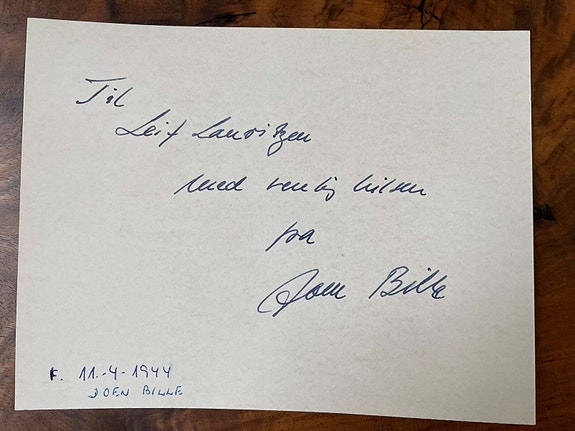 Til
Leif Lauritzen
med venlig hilsen
fra
Joen Bille
F. 11.-4-1944
JOEN BILLE